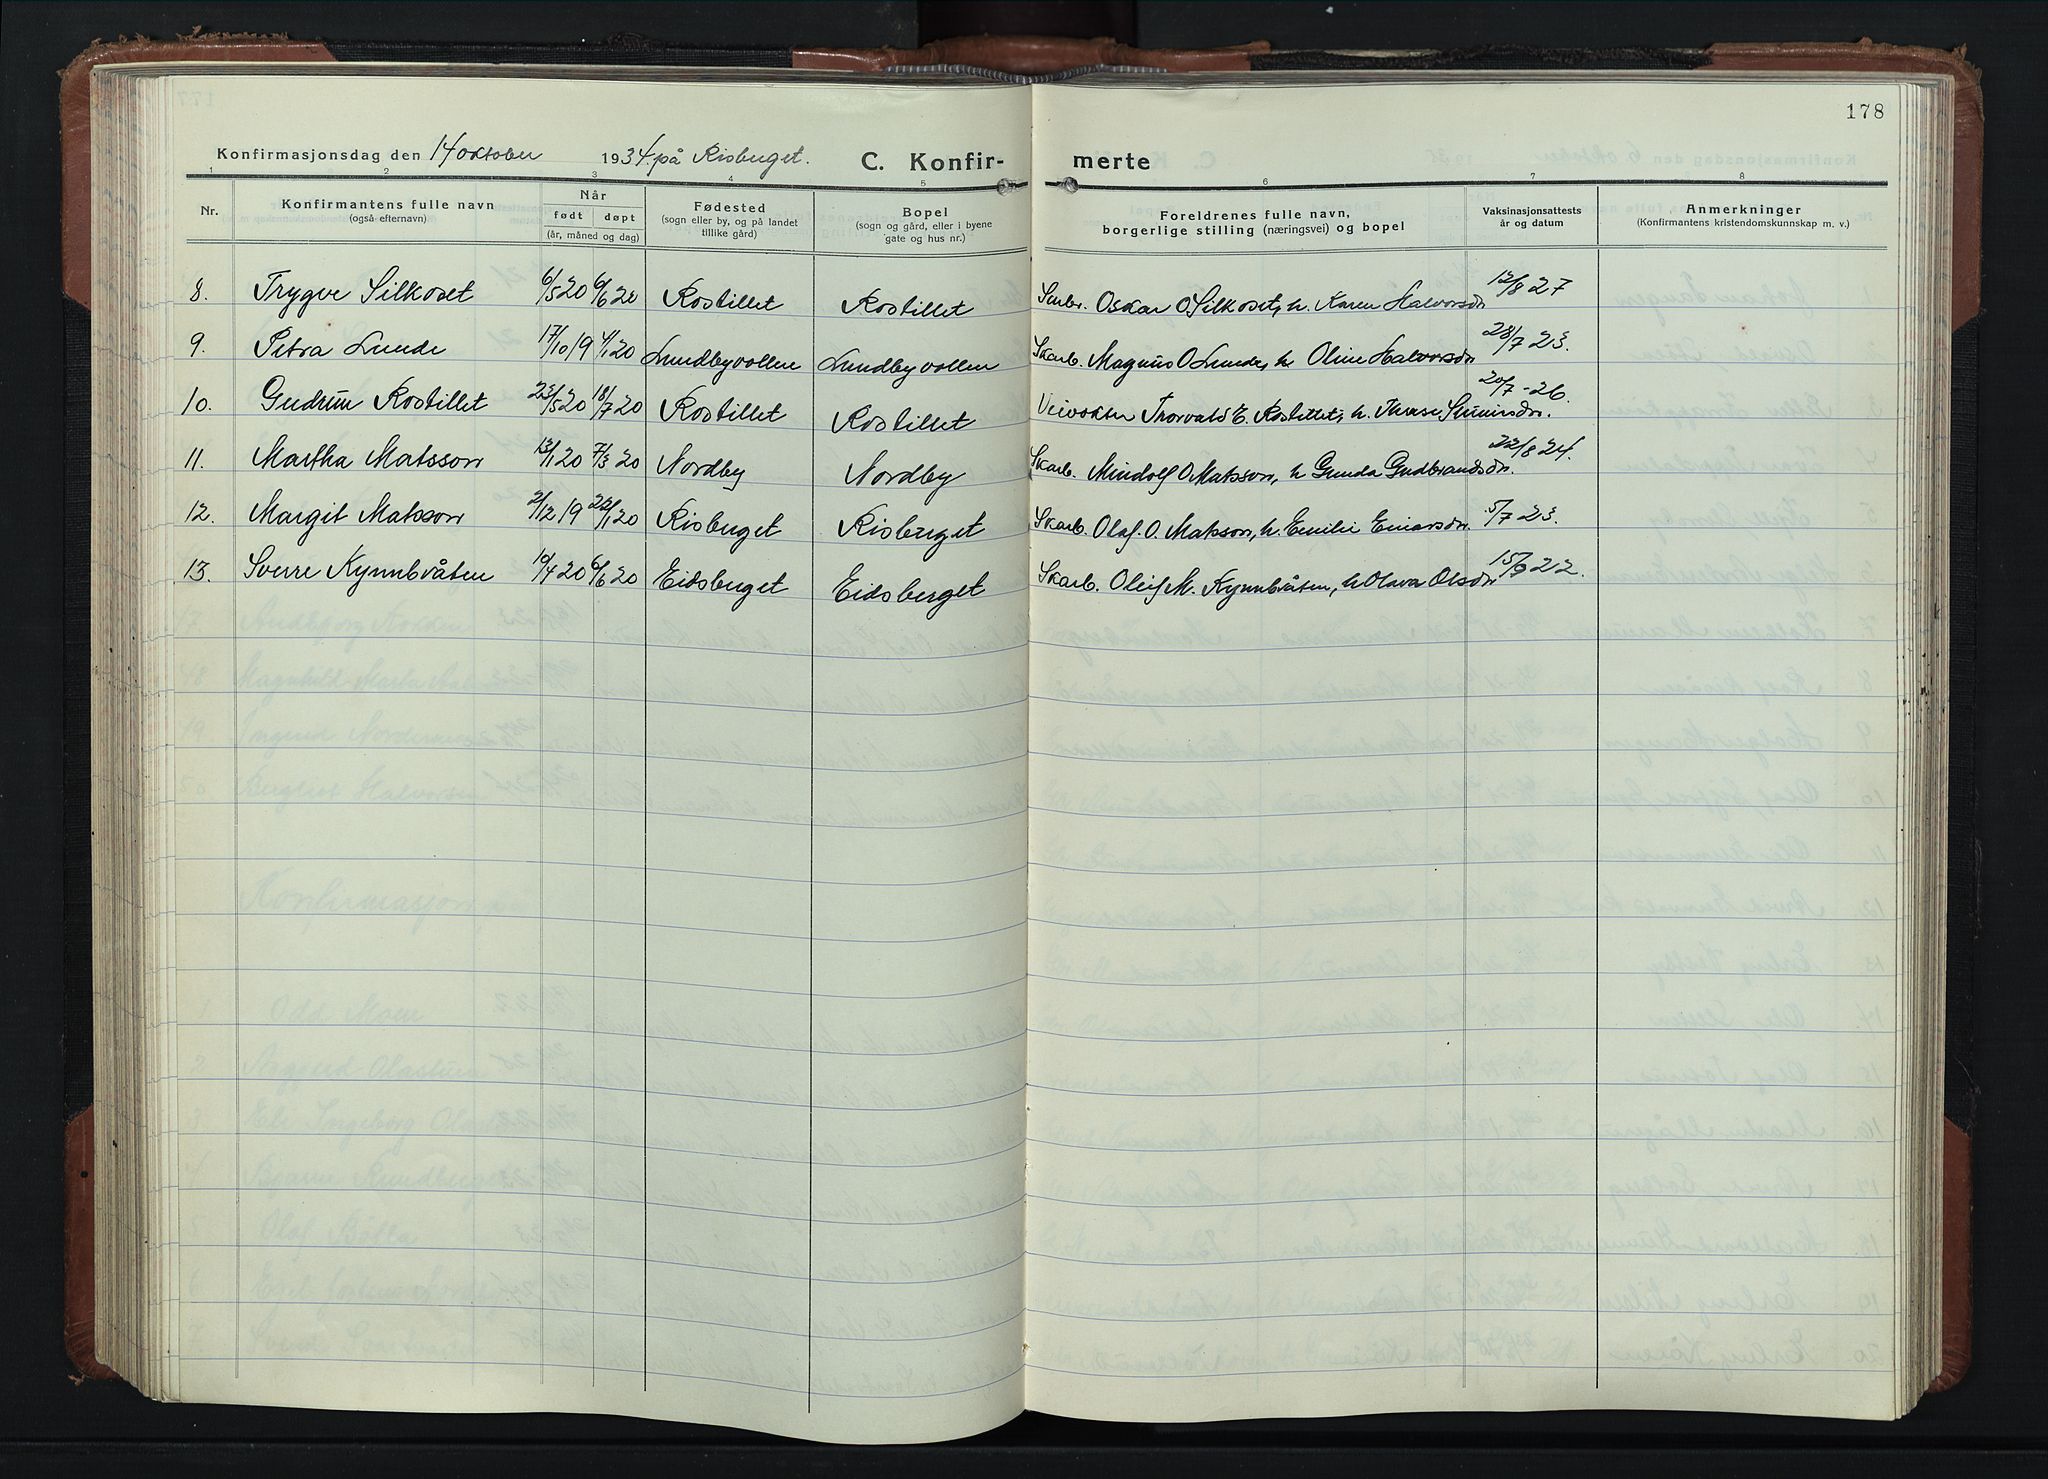 178
Konfirmasjonsdag den 14 oktober 1934 på Risberget. C. Konfir- merte
1 2 3 4 5 6 7 8
Nr. Konfirmantens fulle navn (også efternavn) Når født døpt (år, måned og dag) Fødested (sogn eller by, og på landet tillike gård) Bopel (sogn og gård, eller i byene gate og hus nr.) Foreldrenes fulle navn, borgerlige stilling (næringsvei) og bopel Vaksinasjonsattests år og datum Anmerkninger (Konfirmantens kristendomskunnskap m. v.)
8. Trygve Silkoset 6/5 20 6/6 20 Rostillet Rostillet Smbr. Oskar O. Silkoset, h. Karen Halvorsdr 12/8 27
9. Petra Lunde 17/10 19 4/1 20 Lundbyvollen Lundbyvollen Skarb. Magnus O Lunde, h. Oline Halvorsdr 28/7 23.
10. Gudrun Rostillet 23/5 20 18/7 20 Rostillet Rostillet Veivokter Thorvald E. Rostillet, h. 20/7 - 26.
11. Martha Matsson 13/1 20 7/3 20 Nordby Nordby Skarb. Mindolf O Matsson, h Gunda Gudbrandsdr. 22/8 24.
12. Margit Matsson 2/12 19 22/1 20 Risberget Risberget Skarb. Olaf. O. Matsson, h. Emilie Einarsdr. 5/7 23.
13. Sverre Kynnbråten 10/4 20 6/6 20 Eidsberget Eidsberget Skarb. Oluf M. Kynnbråten, h Olava Olsdr 15/9 22.